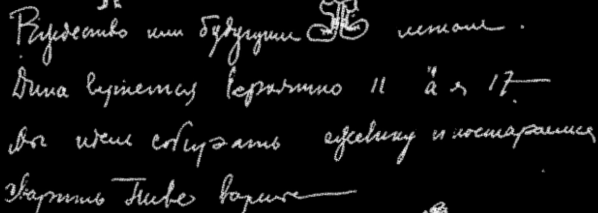 Рождество или будущим летом.
Дина вернется вероятно 11 а я 17
Мы идем собирать ежевику и постараемся
сварить Тиве варенье